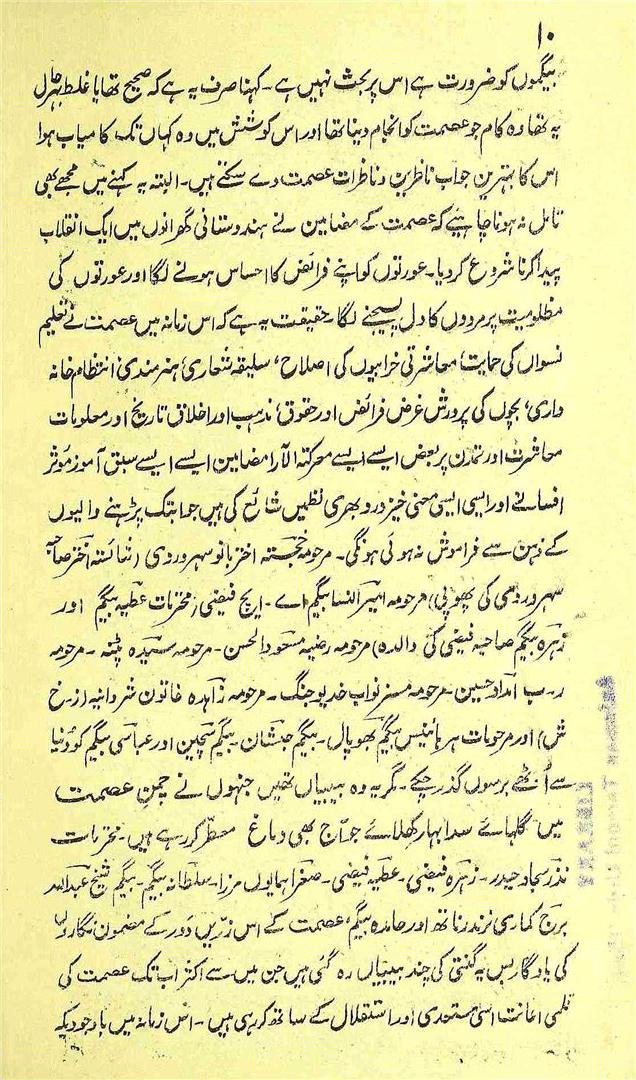 ۱۰
بیگموں کو ضرورت ہے اس پر بحث نہیں ہے۔ کہنا صرف یہ ہے کہ صحیح تھا یا غلط بہرحال
یہ تھا وہ کام جو عصمت کو انجام دینا تھا اور اس کوشش میں وہ کہاں تک کامیاب ہوا
اس کا بہترین جواب ناظرین و ناظرات عصمت دے سکتے ہیں۔ البتہ یہ کہنے میں مجھے بھی
تامل نہ ہونا چاہئیے کہ عصمت کے مضامین نے ہندوستانی گھرانوں میں ایک انقلاب
پیدا کرنا شروع کر دیا۔ عورتوں کو اپنے فرائض کا احساس ہونے لگا اور عورتوں کی
مظلومیت پر مردوں کا دل پسیجنے لگا۔ حقیقت یہ ہے کہ اس زمانہ میں عصمت نے تعلیم
نسواں کی حمایت، معاشرتی خرابیوں کی اصلاح، سلیقہ شعاری، ہنرمندی، انتظام خانہ
داری، بچوں کی پرورش غرض فرائض اور حقوق، مذہب اور اخلاق تاریخ اور معلومات
معاشرت اور تمدن پر بعض ایسے ایسے معرکتہ الآرا مضامین ایسے ایسے سبق آموز مؤثر
افسانے اور ایسی ایسی معنی خیز درد بھری نظمیں شائع کی ہیں جو ابتک پڑہنے والیوں
کے ذہن سے فراموش نہ ہوئی ہونگی۔ مرحومہ خجستہ اختر بانو سہروردی (شائستہ اختر صاحبہ
سہروردی کی پھوپی) مرحومہ امیر النسا بیگم (اے۔ ایچ فیضی، محترمات عطیہ بیگم اور
زہرہ بیگم صاحبہ فیضی کی والدہ) مرحومہ رضیہ مسعود الحسن۔ مرحومہ سیدہ پٹنہ۔ مرحومہ
ر۔ ب امداد حسین۔ مرحومہ مسز نواب خدیو جنگ۔ مرحومہ زاہدہ خاتون شروانیہ (ز۔ خ
ش) اور مرحومات ہر ہائینس بیگم بھوپال۔ بیگم جنشان۔ بیگم سچین اور عباسی بیگم کو دنیا
سے اُٹھے برسوں گذر چکے۔ مگر یہ وہ بیبیاں تھیں جنہوں نے چمن عصمت
میں گلہائے سدا بہار کھلائے جو آج بھی دماغ معطر کر رہے ہیں۔ محترمات
نذر سجاد حیدر۔ زہرہ فیضی۔ عطیہ فیضی۔ صغرا ہمایوں مرزا۔ سلطانہ بیگم۔ بیگم شیخ عبداللہ
برج کماری نرندر ناتھ اور حامدہ بیگم، عصمت کے اس زرّیں دَور کے مضمون نگاروں
کی یادگار بس یہ گنتی کی چند بیبیاں رہ گئی ہیں جن میں سے اکثر اب تک عصمت کی
قلمی اعانت اسی مستعدی اور استقلال کے ساتھ کر رہی ہیں۔ اس زمانہ میں باوجودیکہ